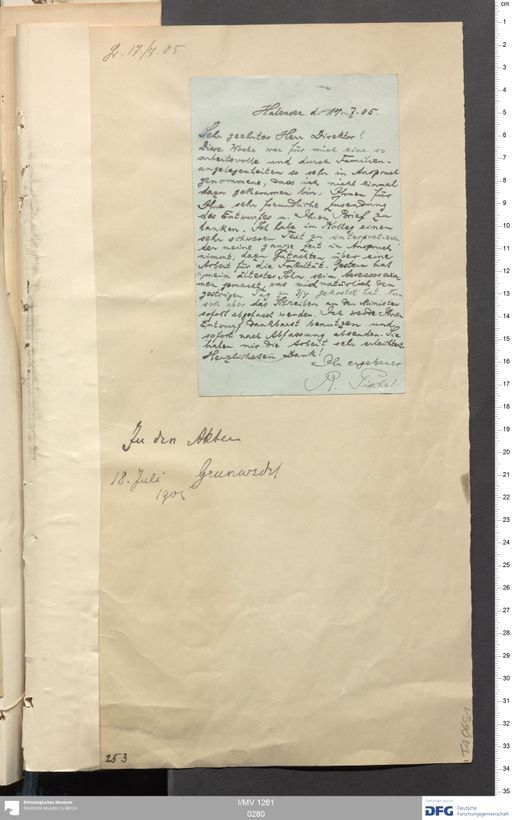 17/7.05
Halensee d. 17.7.05.
Sehr geehrter Herr Direktor!
Diese Woche war für mich eine so
arbeitsvolle und durch Familien-
angelegenheiten so sehr in Anspruch
genommene, dass ich nicht einmal
dazu gekommen bin, Ihnen für
Ihre sehr freundliche Zusendung
des Entwurfes u. Ihren Brief zu
danken. Ich habe im Kolleg einen
sehr schweren Text zu interpretieren
der meine ganze Zeit in Anspruch
nimmt, dazu Gutachten über eine
Arbeit für die Fakultät. Gestern hat
mein ältester Sohn sein Assessorexa-
men gemacht, was mich natürlich den
gestrigen Tag zu 3/4 gekostet hat. Nun
soll aber das Schreiben an den Minister
sofort abgefasst werden. Ich werde Ihren
Entwurf dankbarst benutzen und
sofort nach Abfassung absenden. Sie
haben mir die Arbeit sehr erleichtert.
Herzlichsten Dank!
Ihr ergebener
R. Pischel
Zu den Akten
18. Juli Grünwedel
1905
253
Ethnologisches Museum
Staatliche Museen zu Berlin
I/MV 1261
0280
Gefördert durch
DFG Deutsche
Forschungsgemeinschaft